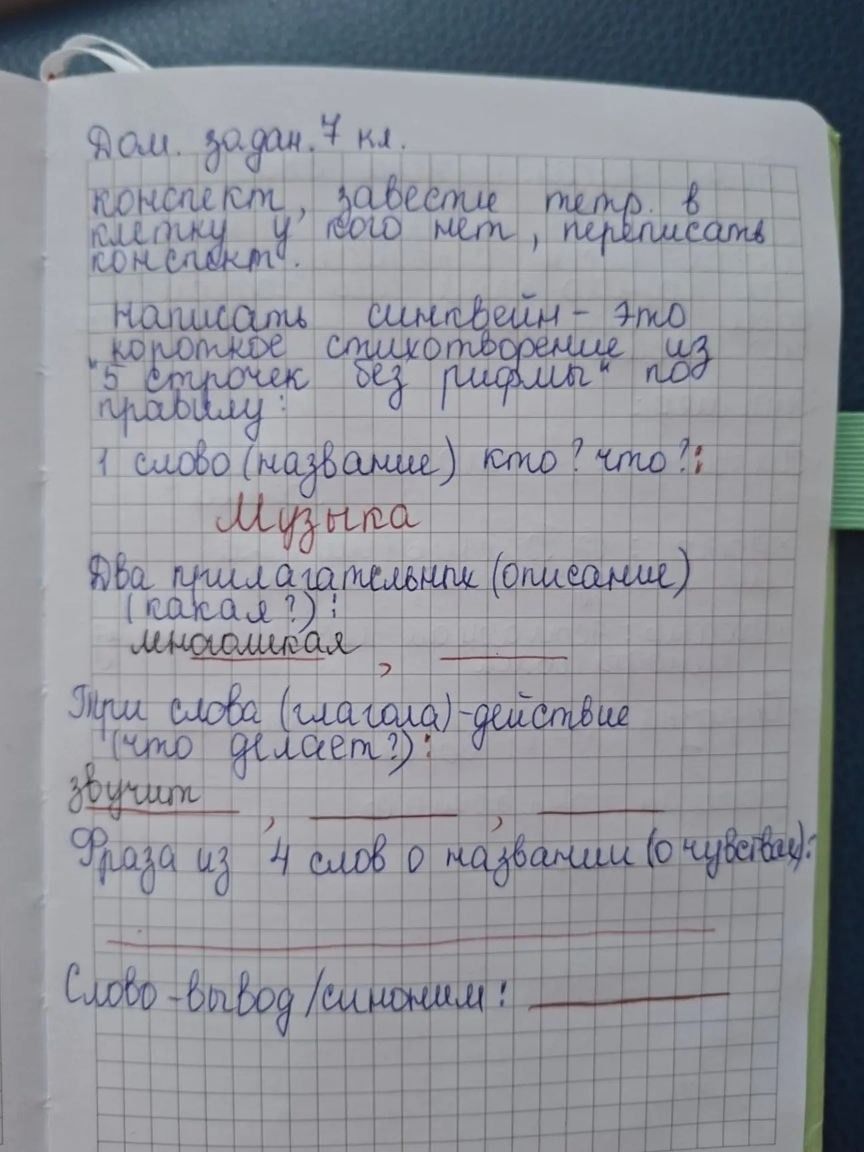 Дом. задан. 7 кл.
конспект, завести тетр. в
клетку у кого нет, переписать
конспект.
написать синквейн - это
"короткое стихотворение из
5 строчек без рифмы" по
правилу:
1 слово (название) кто? что?:
Музыка
Два прилагательных (описание)
(какая?):
многоликая, ____
Три слова (глагола) - действие
(что делает?):
звучит, ____, ____
Фраза из 4 слов о названии (о чувствах):
____
Слово-вывод/синоним: ____